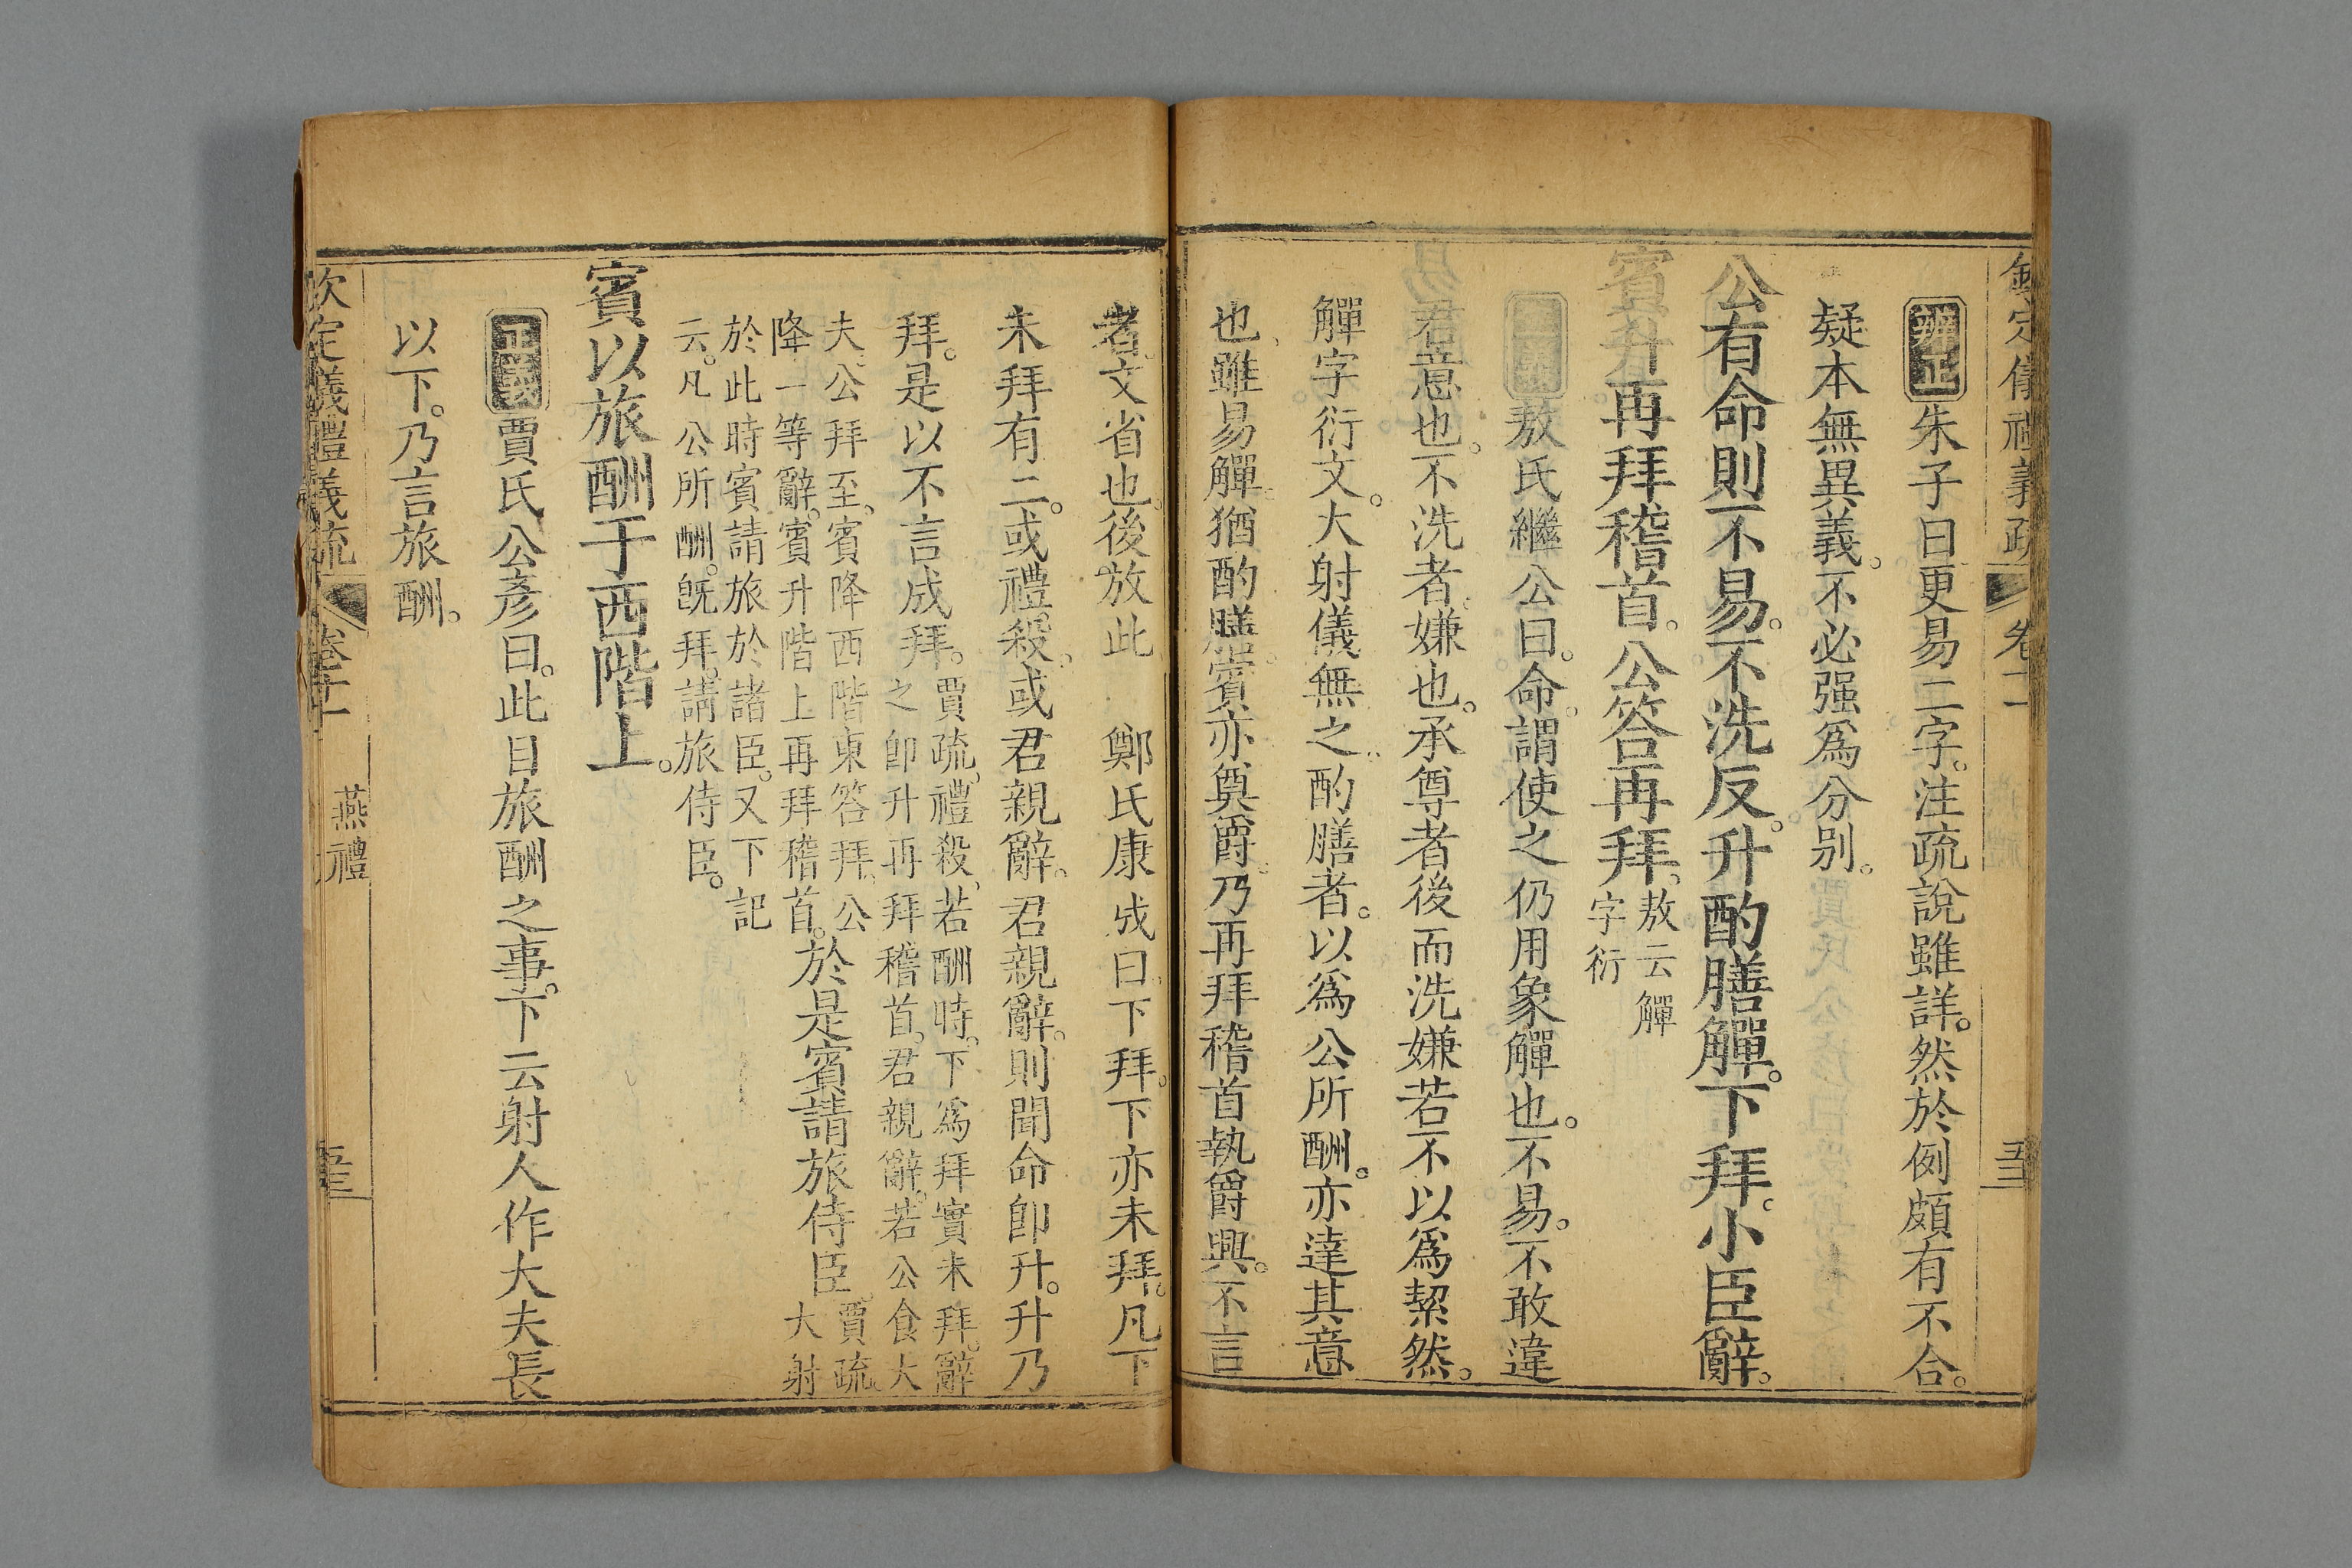 欽定儀禮義疏 卷十二 五十三
辨正 朱子曰更易二字。注疏說雖詳。然於例頗有不合。
疑本無異義。不必强爲分别。
公有命則不易。不洗反。升酌膳觶。下拜。小臣辭。
賓升再拜稽首。公答再拜。敖云觶
字衍
正義 敖氏繼公曰。命。謂使之仍用象觶也。不易。不敢違
君意也。不洗者。嫌也。承尊者後而洗嫌若不以爲絜然。
觶字衍文。大射儀無之。酌膳者。以爲公所酬。亦達其意
也。雖易觶。猶酌膳。賓亦奠爵。乃再拜稽首執爵興。不言
者。文省也。後放此 鄭氏康成曰下拜。下亦未拜。凡下
未拜有二。或禮殺。或君親辭。君親辭。則聞命卽升。升乃
拜。是以不言成拜。賈疏。禮殺。若酬時。下爲拜實未拜。辭
之卽升再拜稽首。君親辭。若公食大
夫。公拜至。賓降西階東答拜。公
降一等辭。賓升階上再拜稽首。於是賓請旅侍臣。賈疏。
大射
於此時賓請旅於諸臣。又下記
云。凡公所酬。旣拜。請旅侍臣。
賓以旅酬于西階上。
正義 賈氏公彥曰。此目旅酬之事。下云射人作大夫長
以下。乃言旅酬。
欽定儀禮義疏 卷十一 燕禮 五十三